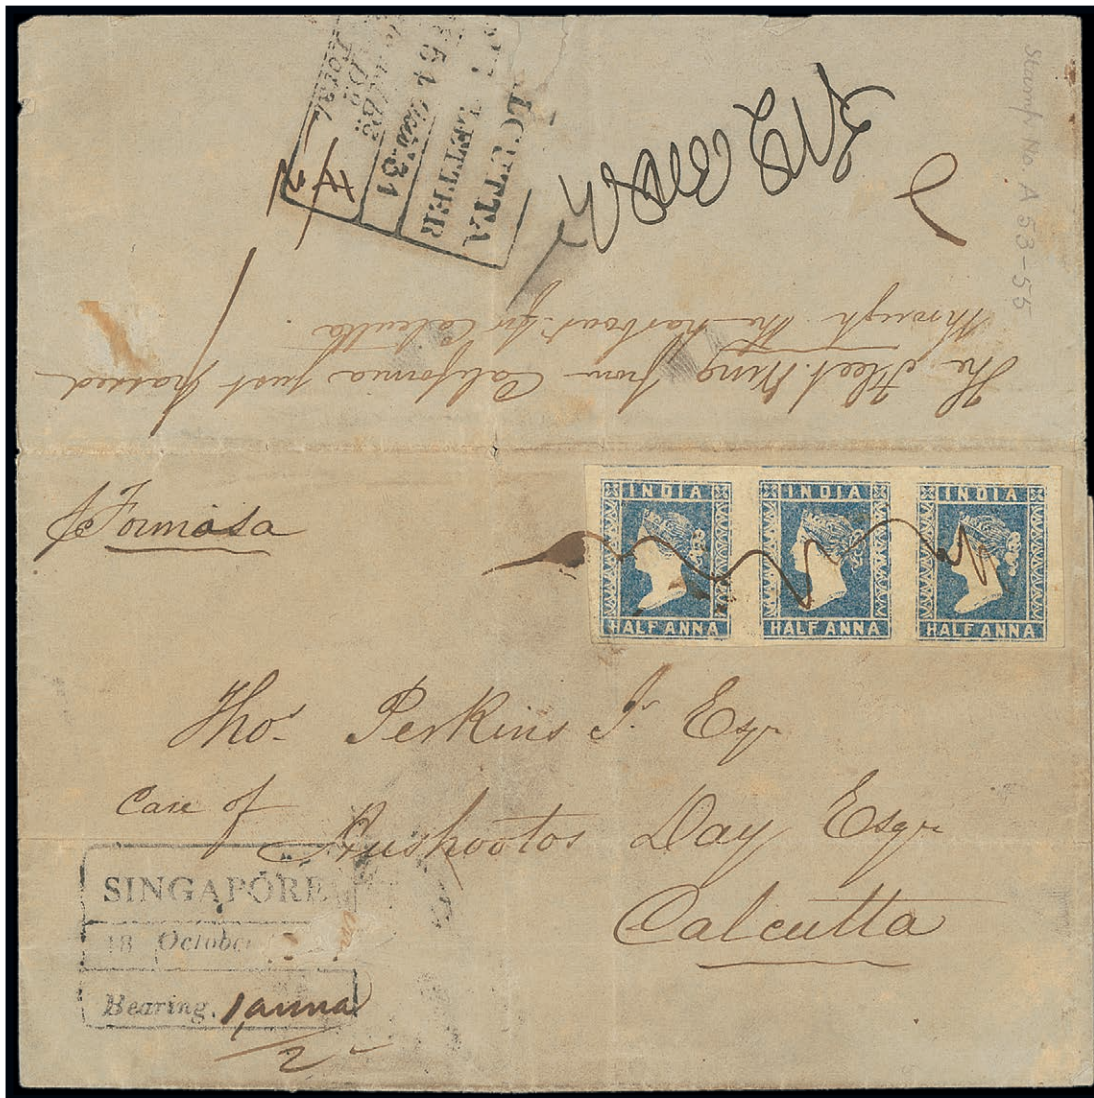 Stamp No. A 53-55
ALCUTTA
LETTER
The Fleet Wing from California just passed
through the harbour for Calcutta
p Formosa
INDIA
HALF ANNA
INDIA
HALF ANNA
INDIA
HALF ANNA
Thos Perkins Jr Esqr
Care of
Aushootos Day Esqr
Calcutta
SINGAPORE
18 October
Bearing. 1 anna
2